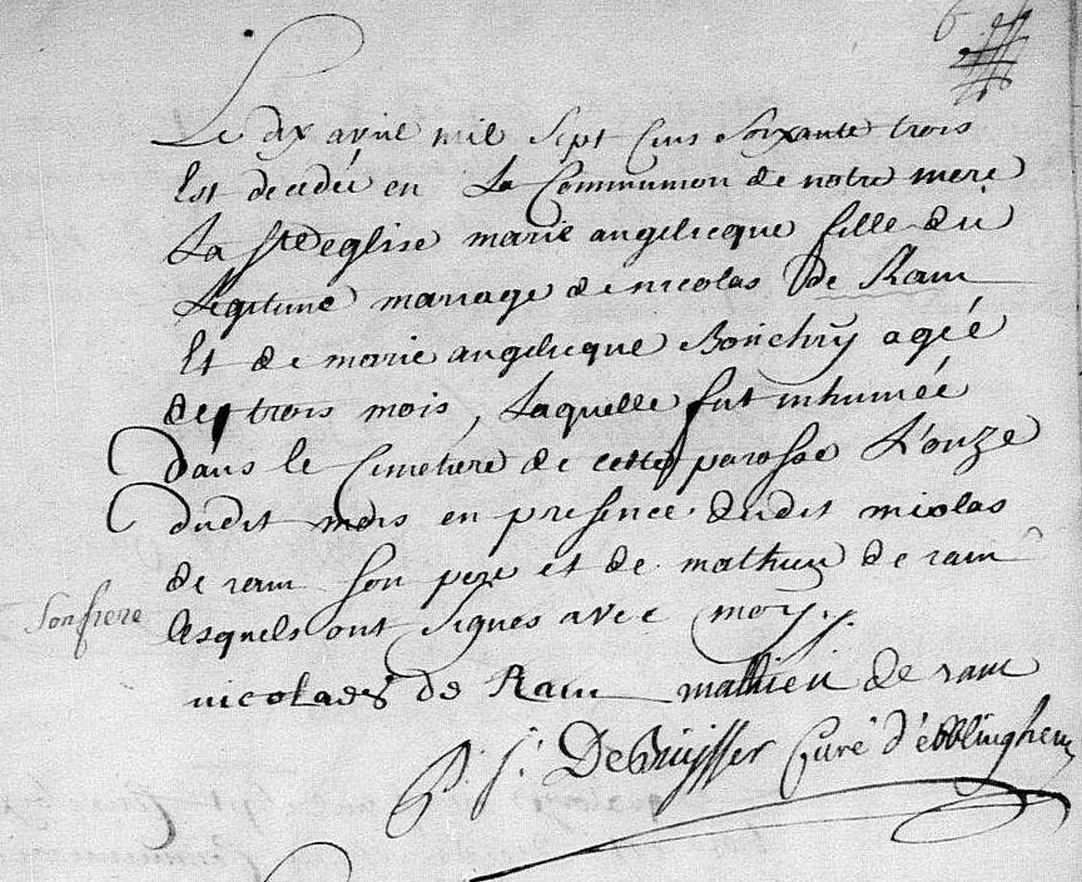 6
Le dix avril mil Sept Cens Soixante trois
Est decedée en La Communion de notre mere
La Ste eglise marie angelicque fille du
Legitime mariage de nicolas de Ram
Et de marie angelicque agée
de trois mois, Laquelle fut inhumée
dans le Cimetiere de cette paroisse L'onze
dudit mois en presence dudit nicolas
de ram son pere et de mathieu de ram
Son frere
lesquels ont Signes avec moy
nicolaes de Ram mathieu de ram
P. J. DeBuijsser Curé d'ébblinghem